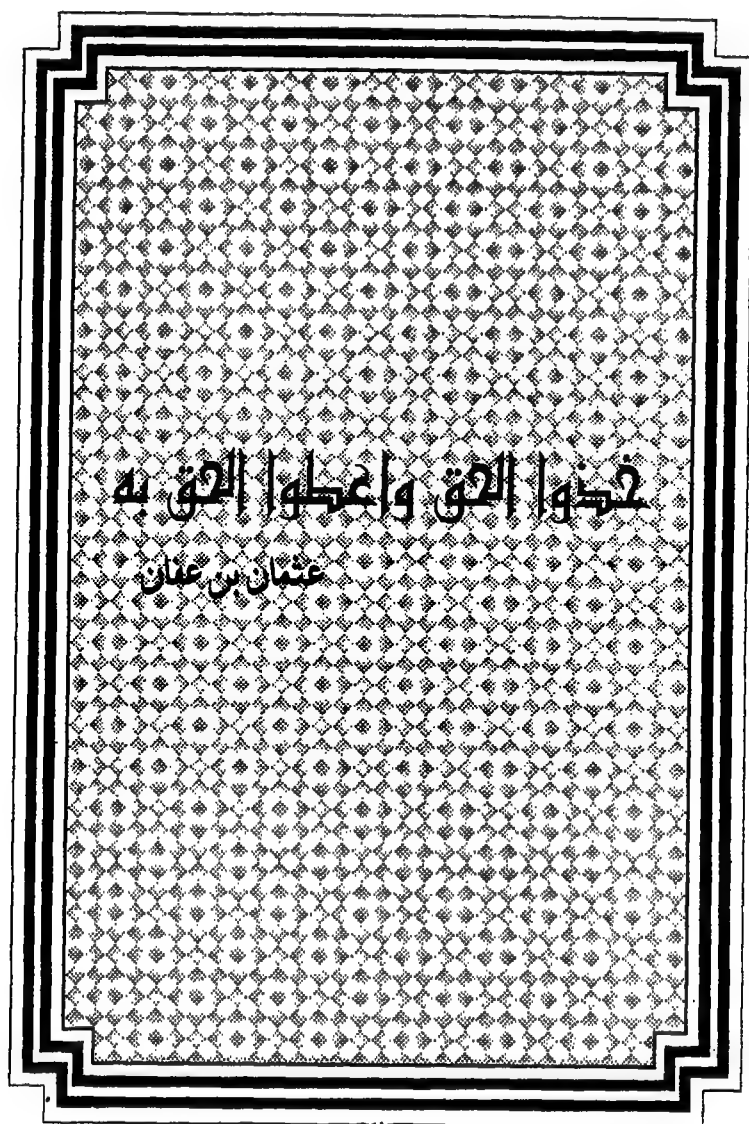 خذوا الحق واعطوا الحق به
عثمان بن عفان